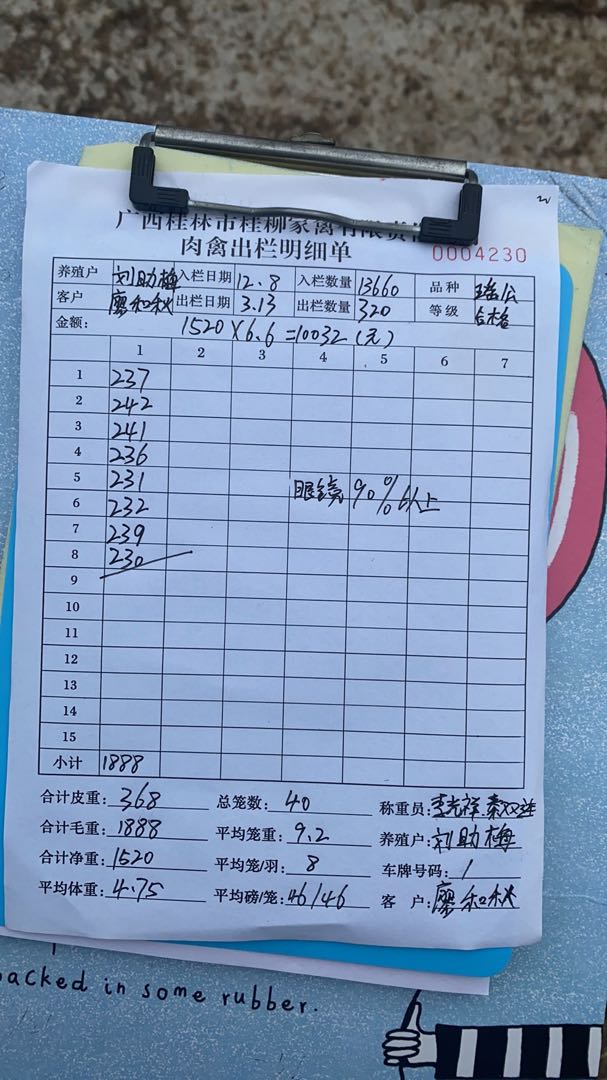 广西桂林市桂柳家禽有限责
肉禽出栏明细单
0004230
养殖户 刘助梅 入栏日期 12.8 入栏数量 13660 品种 瑶公
客户 廖和秋 出栏日期 3.13 出栏数量 320 等级 合格
金额: 1520×6.6=10032(元)
1 2 3 4 5 6 7
1 237
2 242
3 241
4 236
5 231 眼镜90%以上
6 232
7 239
8 230
9
10
11
12
13
14
15
小计 1888
合计皮重: 368 总笼数: 40 称重员: 李光祥
合计毛重: 1888 平均笼重: 9.2 养殖户: 刘助梅
合计净重: 1520 平均笼/羽: 8 车牌号码: /
平均体重: 4.75 平均磅/笼: 46/46 客户: 廖和秋
packed in some rubber.